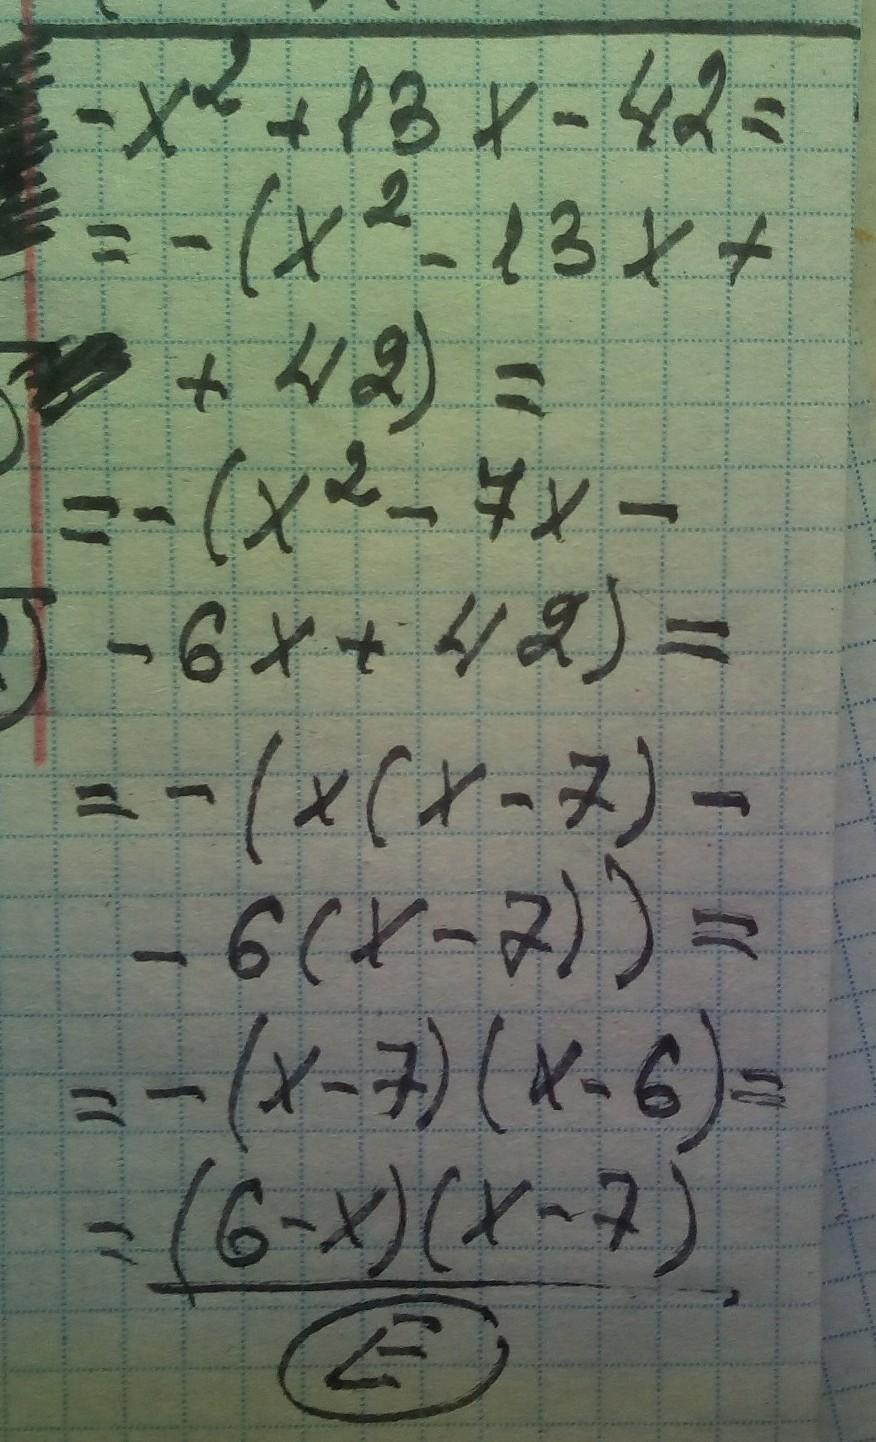 -x² + 13x - 42 =
= -(x² - 13x +
+ 42) =
= -(x² - 7x -
- 6x + 42) =
= -(x(x - 7) -
- 6(x - 7)) =
= -(x - 7)(x - 6) =
= (6 - x)(x - 7)